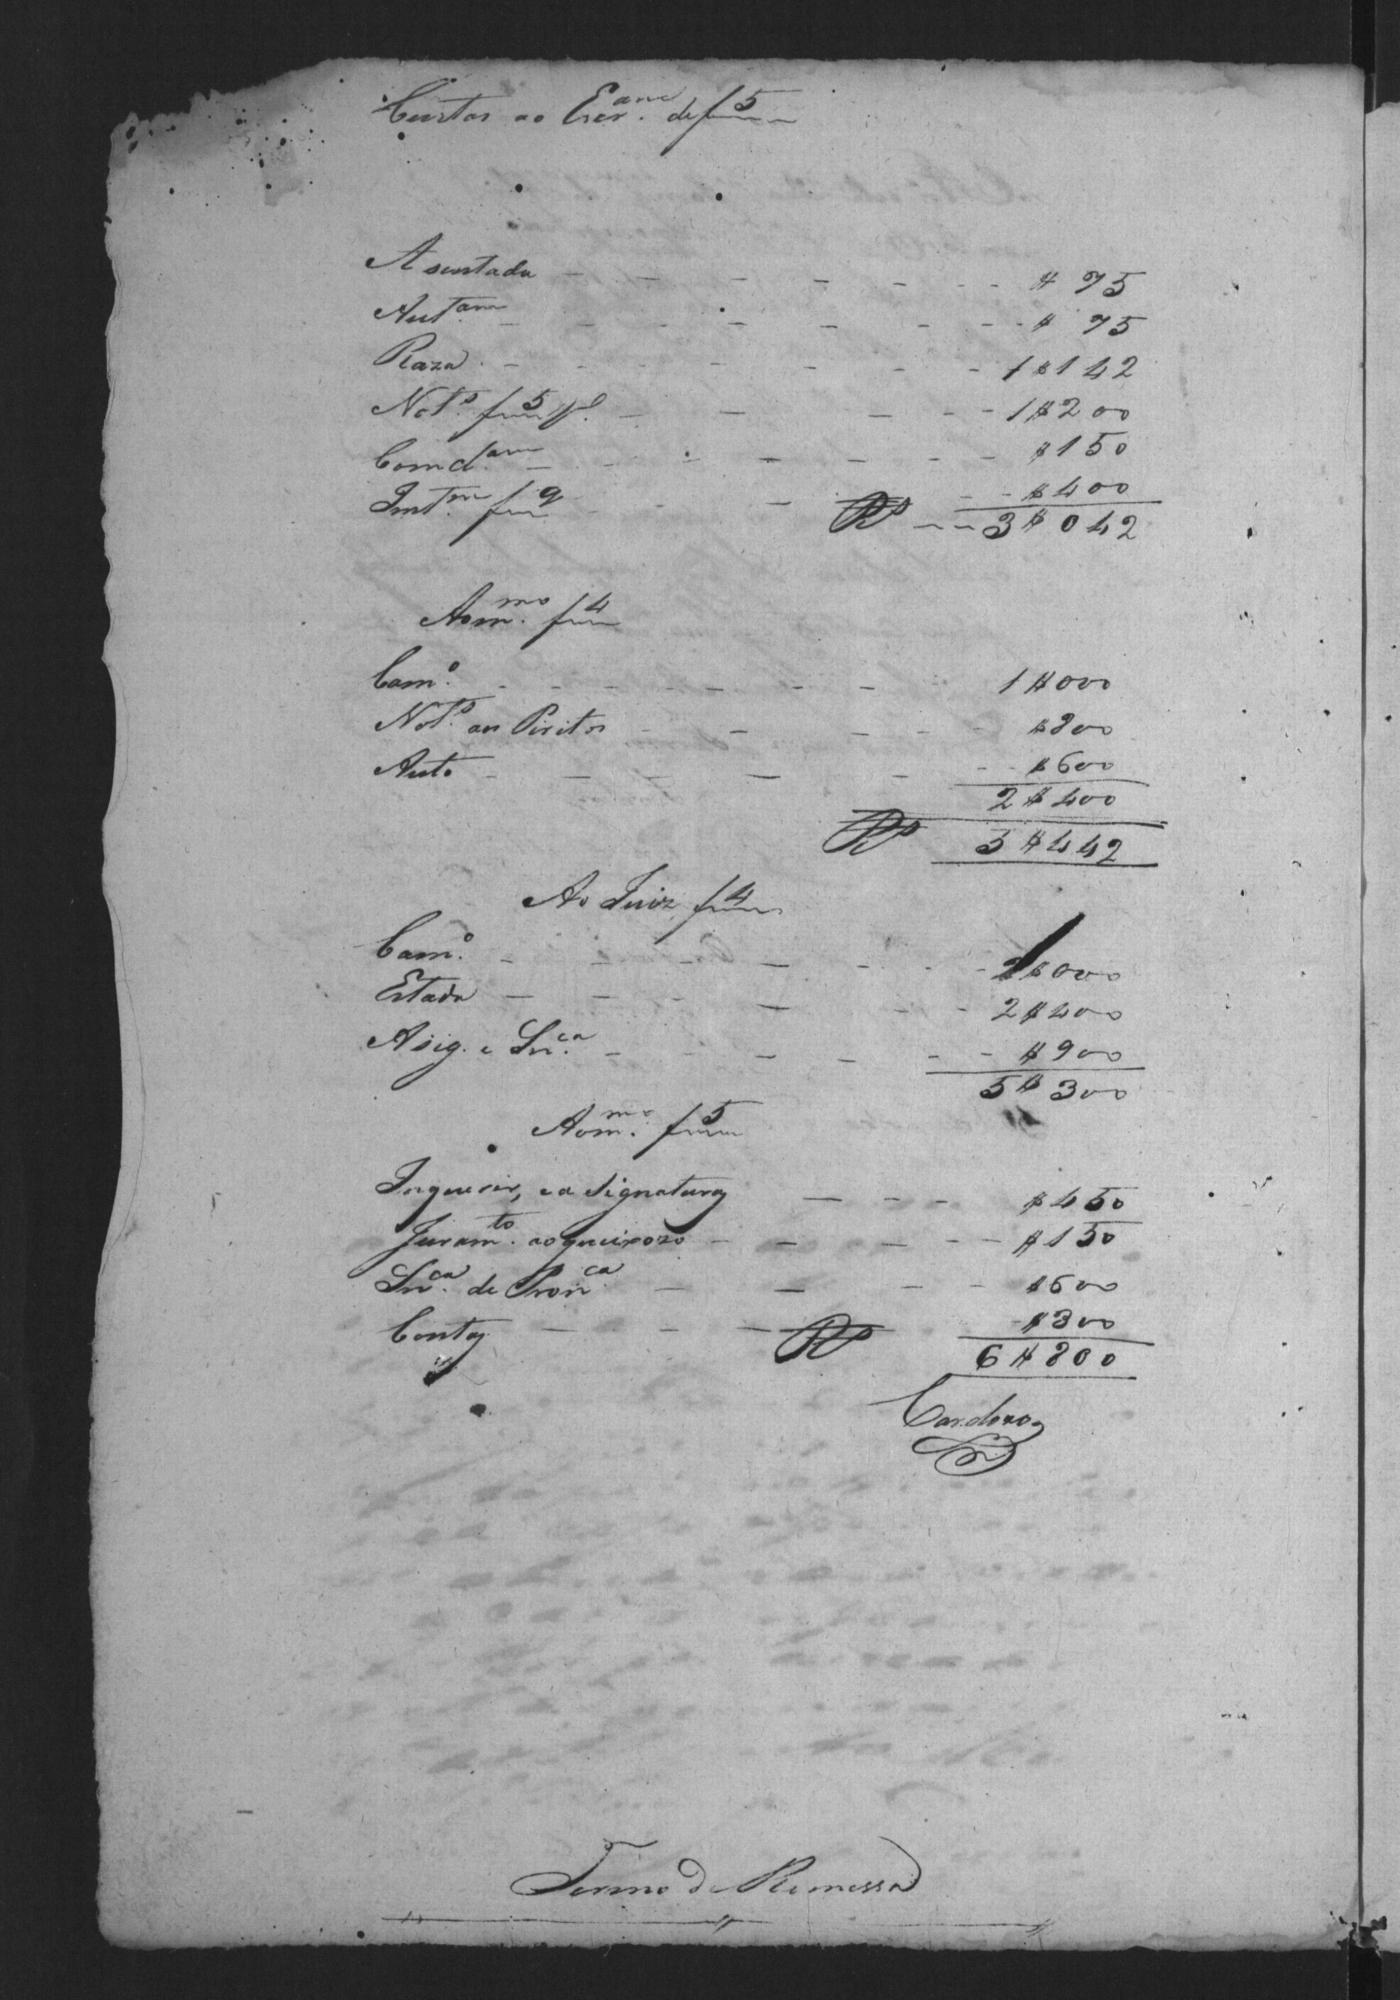 Custas ao Escr.am de f 5
Asentada - - - - - - $ 75
Aut.am - - - - - - $ 75
Raza - - - - - - 1$142
Not.o f 5 - - - - 1$200
Comd.am - - - - - - $150
Int.m f 9 - - - $400
Rs - - 3$042
Aom.mo f 4
Cam.o - - - - - - 1$000
Not.o aos Piritos - - - - $800
Auto - - - - - - $600
2$400
Rs 5$442
Ao Juiz f 4
Cam.o - - - - - - 2$000
Estada - - - - - 2$400
Asig. e Sn.ca - - - - - - $900
5$300
Aom.mo f 5
Inquerir, e a Signatura - - - $450
Juram.to ao queixozo - - - - - $150
Sn.ca de Pron.ca - - - - $600
Conta - - - - - $300
Rs 6$800
Cardozo
Termo de Remessa